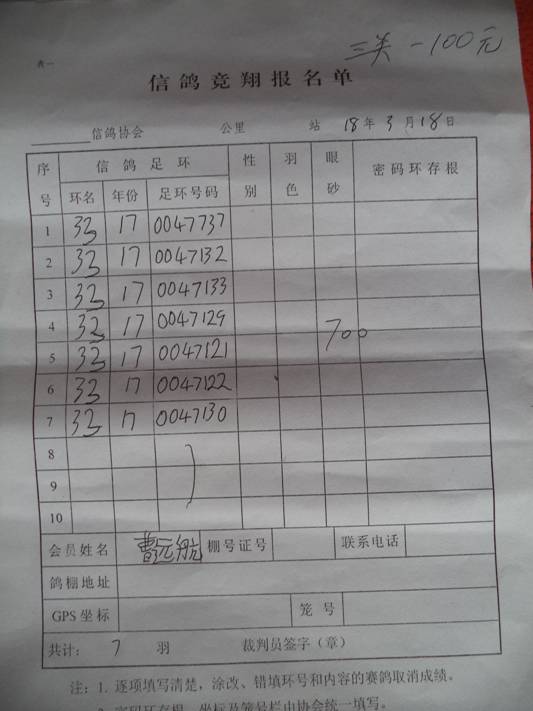 表一
三关-100元
信鸽竞翔报名单
信鸽协会 公里 站 18年3月18日
序号 信鸽足环 性别 羽色 眼砂 密码环存根
环名 年份 足环号码
1 32 17 0047737
2 32 17 0047132
3 32 17 0047133
4 32 17 0047129
700
5 32 17 0047121
6 32 17 0047122
7 32 17 0047130
8
9
10
会员姓名 曹远航 棚号证号 联系电话
鸽棚地址
GPS坐标 笼号
共计: 7 羽 裁判员签字(章)
注:1. 逐项填写清楚,涂改、错填环号和内容的赛鸽取消成绩。
2. 密码环存根、坐标及笼号栏由协会统一填写。